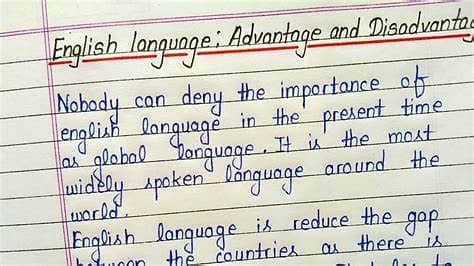 English language: Advantage and Disadvantag
Nobody can deny the importance of
english language in the present time
as global language. It is the most
widely spoken language around the
world.
English language is reduce the gap
between the countries as there is